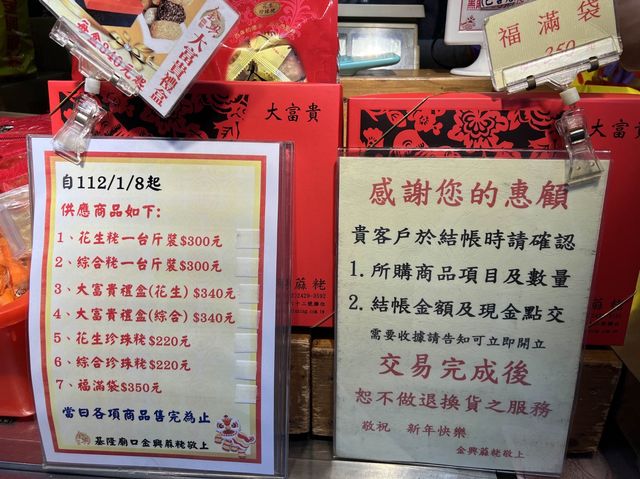 每盒340元起
大富貴禮盒
福滿袋
350
大富貴
大富貴
自112/1/8起
供應商品如下:
1、花生粩一台斤裝$300元
2、綜合粩一台斤裝$300元
3、大富貴禮盒(花生) $340元
4、大富貴禮盒(綜合) $340元
5、花生珍珠粩$220元
6、綜合珍珠粩$220元
7、福滿袋$350元
當日各項商品售完為止
基隆廟口金興蔴粩敬上
感謝您的惠顧
貴客戶於結帳時請確認
1. 所購商品項目及數量
2. 結帳金額及現金點交
需要收據請告知可立即開立
交易完成後
恕不做退換貨之服務
敬祝 新年快樂
金興蔴粩敬上
蔴粩
蔴粩